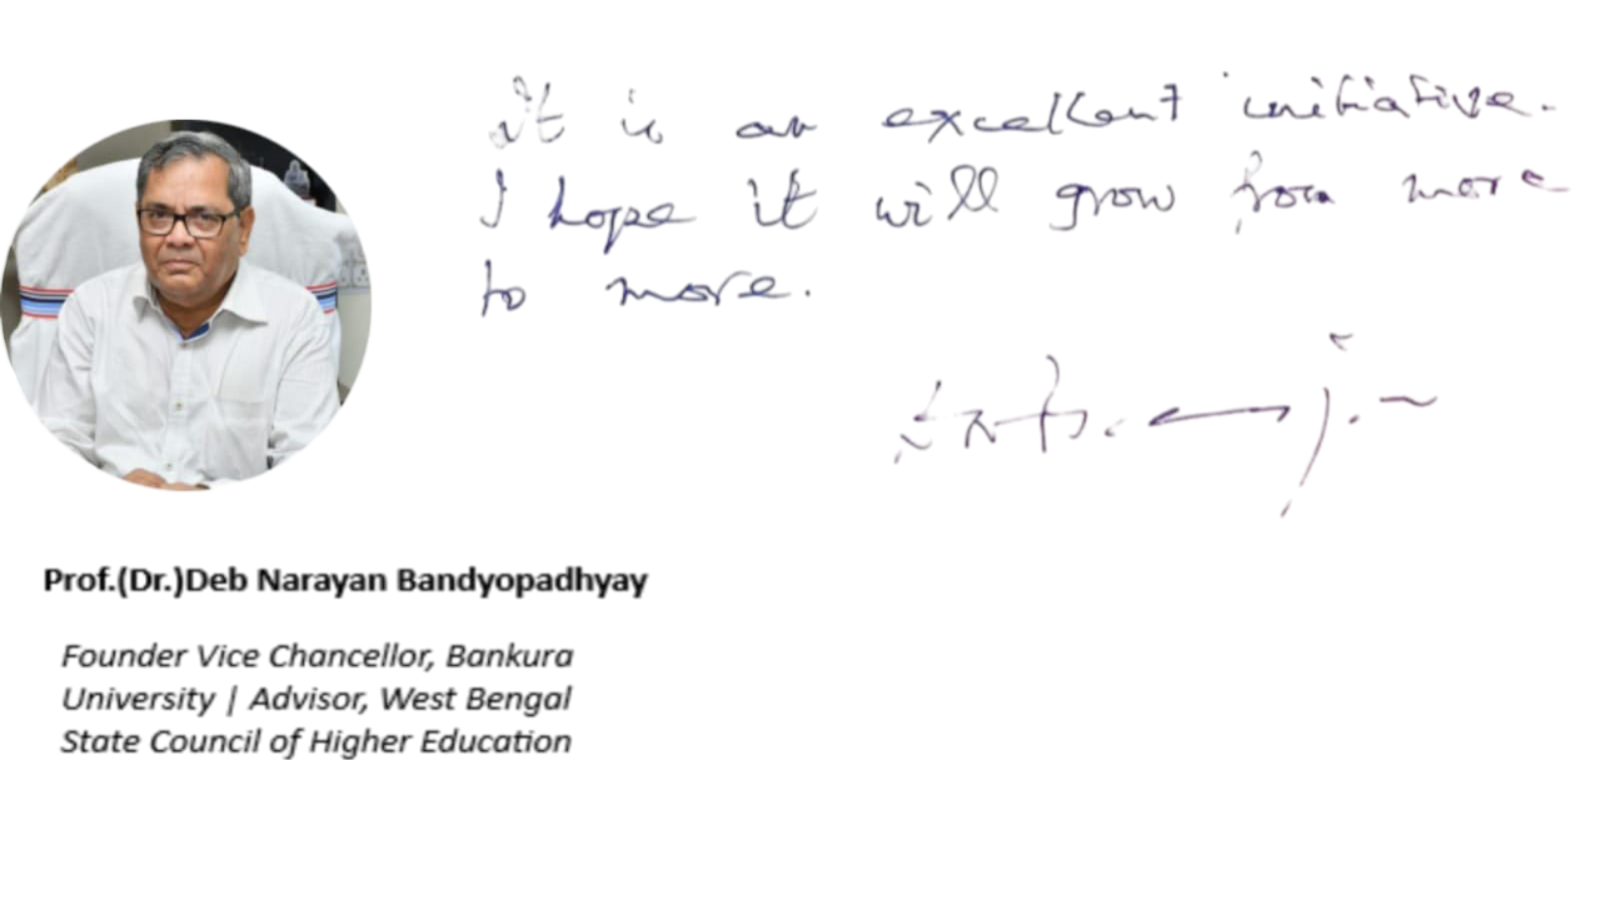 it is an excellent initiative.
I hope it will grow from more
to more.
Prof.(Dr.)Deb Narayan Bandyopadhyay
Founder Vice Chancellor, Bankura
University | Advisor, West Bengal
State Council of Higher Education